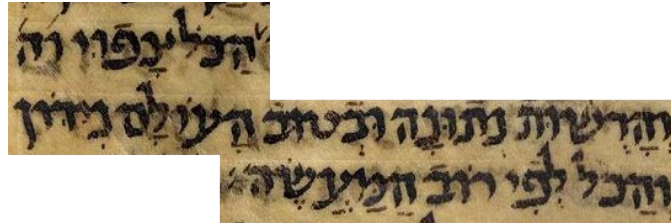 הַכֹּל צָפוּי וה
וְהָרְשׁוּת נְתוּנָה וּבְטוֹב הָעוֹלָם נִדּוֹן
וְהַכֹּל לְפִי רוֹב הַמַּעֲשֶׂה